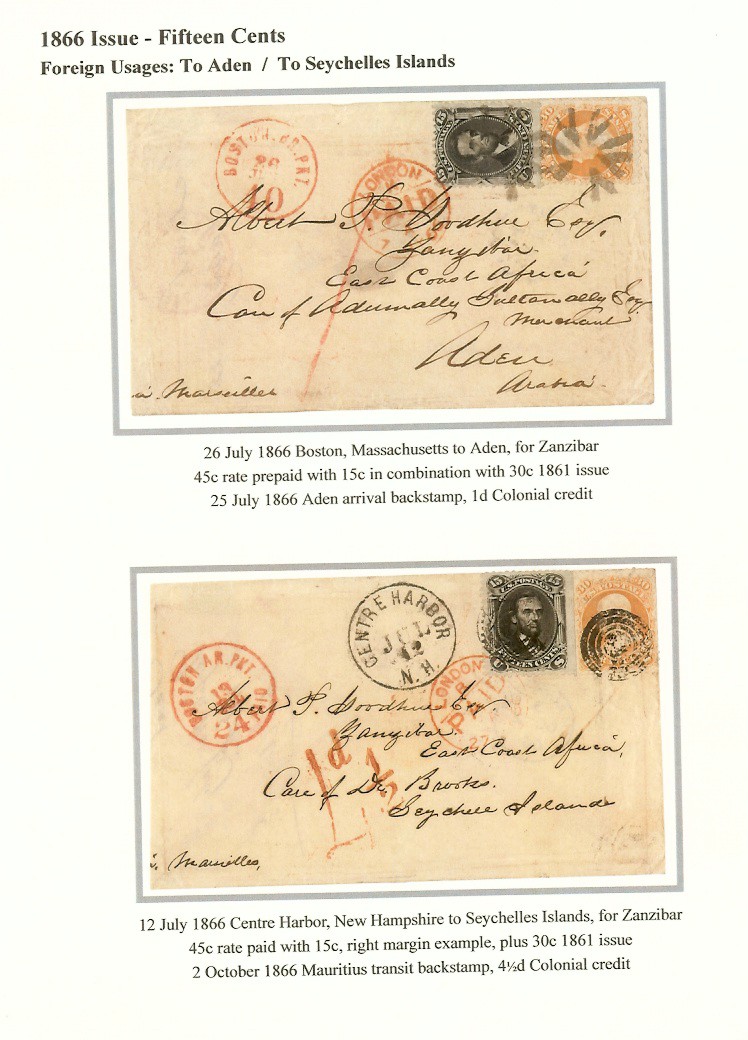 1866 Issue - Fifteen Cents
Foreign Usages: To Aden / To Seychelles Islands
BOSTON. BR. PKT.
40
LONDON
PAID
15 U.S. POSTAGE 15
Albert P. Goodhue Esq.
Zanzibar
East Coast Africa
Care of Adumally Sultanally Esq
Merchant
Aden
Arabia
via Marseilles
26 July 1866 Boston, Massachusetts to Aden, for Zanzibar
45c rate prepaid with 15c in combination with 30c 1861 issue
25 July 1866 Aden arrival backstamp, 1d Colonial credit
CENTRE HARBOR
JUL
12
N.H.
15 U.S. POSTAGE 15
FIFTEEN CENTS
30 U.S. POSTAGE 30
BOSTON AM. PKT. PAID
24
LONDON
PAID
Albert P. Goodhue Esq
Zanzibar
East Coast Africa,
1d 1/2
Care of Dr. Brooks.
Seychell Islands
Marseilles,
12 July 1866 Centre Harbor, New Hampshire to Seychelles Islands, for Zanzibar
45c rate paid with 15c, right margin example, plus 30c 1861 issue
2 October 1866 Mauritius transit backstamp, 4½d Colonial credit